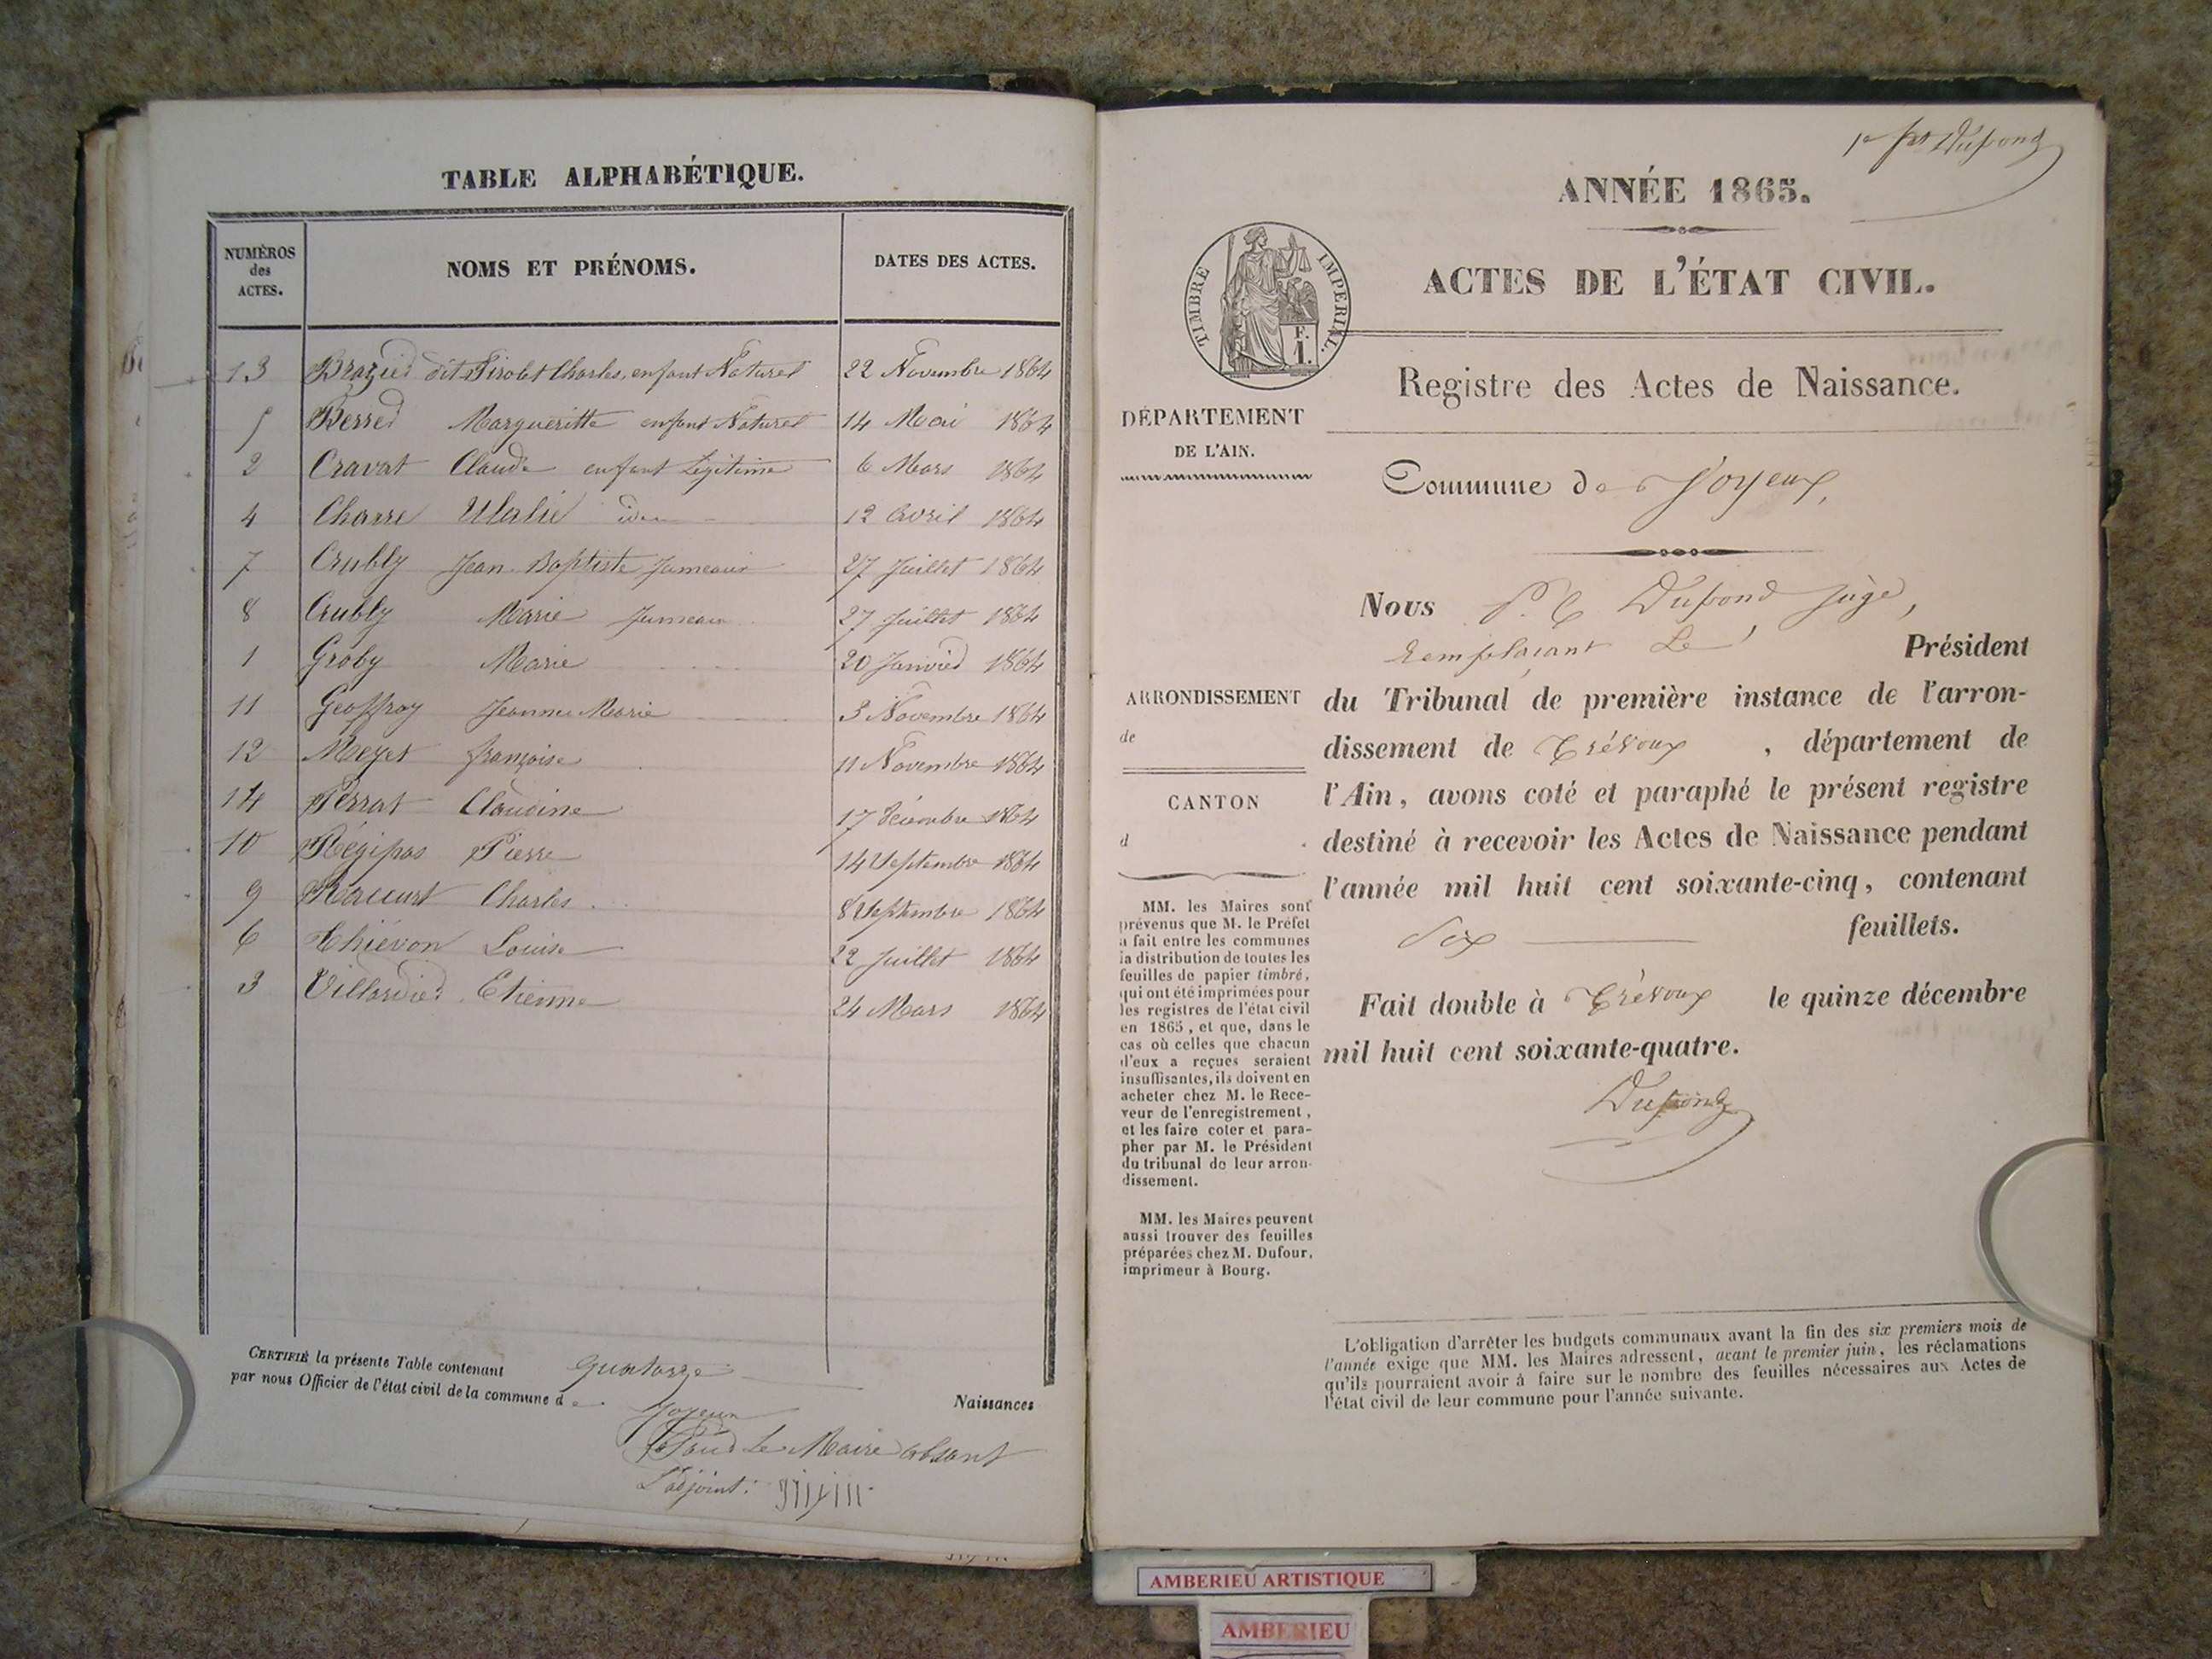 TABLE ALPHABÉTIQUE.
NUMÉROS des ACTES. NOMS ET PRÉNOMS. DATES DES ACTES.
13 Brazier dit Charles, enfant Naturel 22 Novembre 1864
5 Berred Margueritte enfant Naturel 14 Mai 1864
2 Cravat Claude enfant Légitime 6 Mars 1864
4 Charre Ulalie idem 12 Avril 1864
7 Crubly Jean Baptiste Jumeaux 27 Juillet 1864
8 Crubly Marie Jumeaux 27 Juillet 1864
1 Groby Marie 20 Janvier 1864
11 Geoffray Jeanne Marie 3 Novembre 1864
12 Meyet françoise 11 Novembre 1864
14 Perrat Claudine 17 Décembre 1864
10 Régipas Pierre 14 Septembre 1864
9 Charles 8 Septembre 1864
6 Thiévon Louise 22 Juillet 1864
3 Villardier Etienne 24 Mars 1864
CERTIFIÉ la présente Table contenant quatorze Naissances
par nous Officier de l'état civil de la commune de Joyeux
Pour Le Maire absant
L'adjoint:
1er fet Dupond
ANNÉE 1865.
ACTES DE L'ÉTAT CIVIL.
TIMBRE IMPERIAL.
F. 1.
Registre des Actes de Naissance.
DÉPARTEMENT
DE L'AIN.
Commune de Joyeux,
Nous P. C Dupond Juge,
remplaçant Le Président
ARRONDISSEMENT
de
CANTON
d
du Tribunal de première instance de l'arron-
dissement de Trévoux, département de
l'Ain, avons coté et paraphé le présent registre
destiné à recevoir les Actes de Naissance pendant
l'année mil huit cent soixante-cinq, contenant
Six feuillets.
Fait double à Trévoux le quinze décembre
mil huit cent soixante-quatre.
Dupond
MM. les Maires sont
prévenus que M. le Préfet
a fait entre les communes
la distribution de toutes les
feuilles de papier timbré,
qui ont été imprimées pour
les registres de l'état civil
en 1865, et que, dans le
cas où celles que chacun
d'eux a reçues seraient
insuffisantes, ils doivent en
acheter chez M. le Rece-
veur de l'enregistrement,
et les faire coter et para-
pher par M. le Président
du tribunal de leur arron-
dissement.
MM. les Maires peuvent
aussi trouver des feuilles
préparées chez M. Dufour,
imprimeur à Bourg.
L'obligation d'arrêter les budgets communaux avant la fin des six premiers mois de
l'année exige que MM. les Maires adressent, avant le premier juin, les réclamations
qu'ils pourraient avoir à faire sur le nombre des feuilles nécessaires aux Actes de
l'état civil de leur commune pour l'année suivante.
AMBERIEU ARTISTIQUE
AMBERIEU